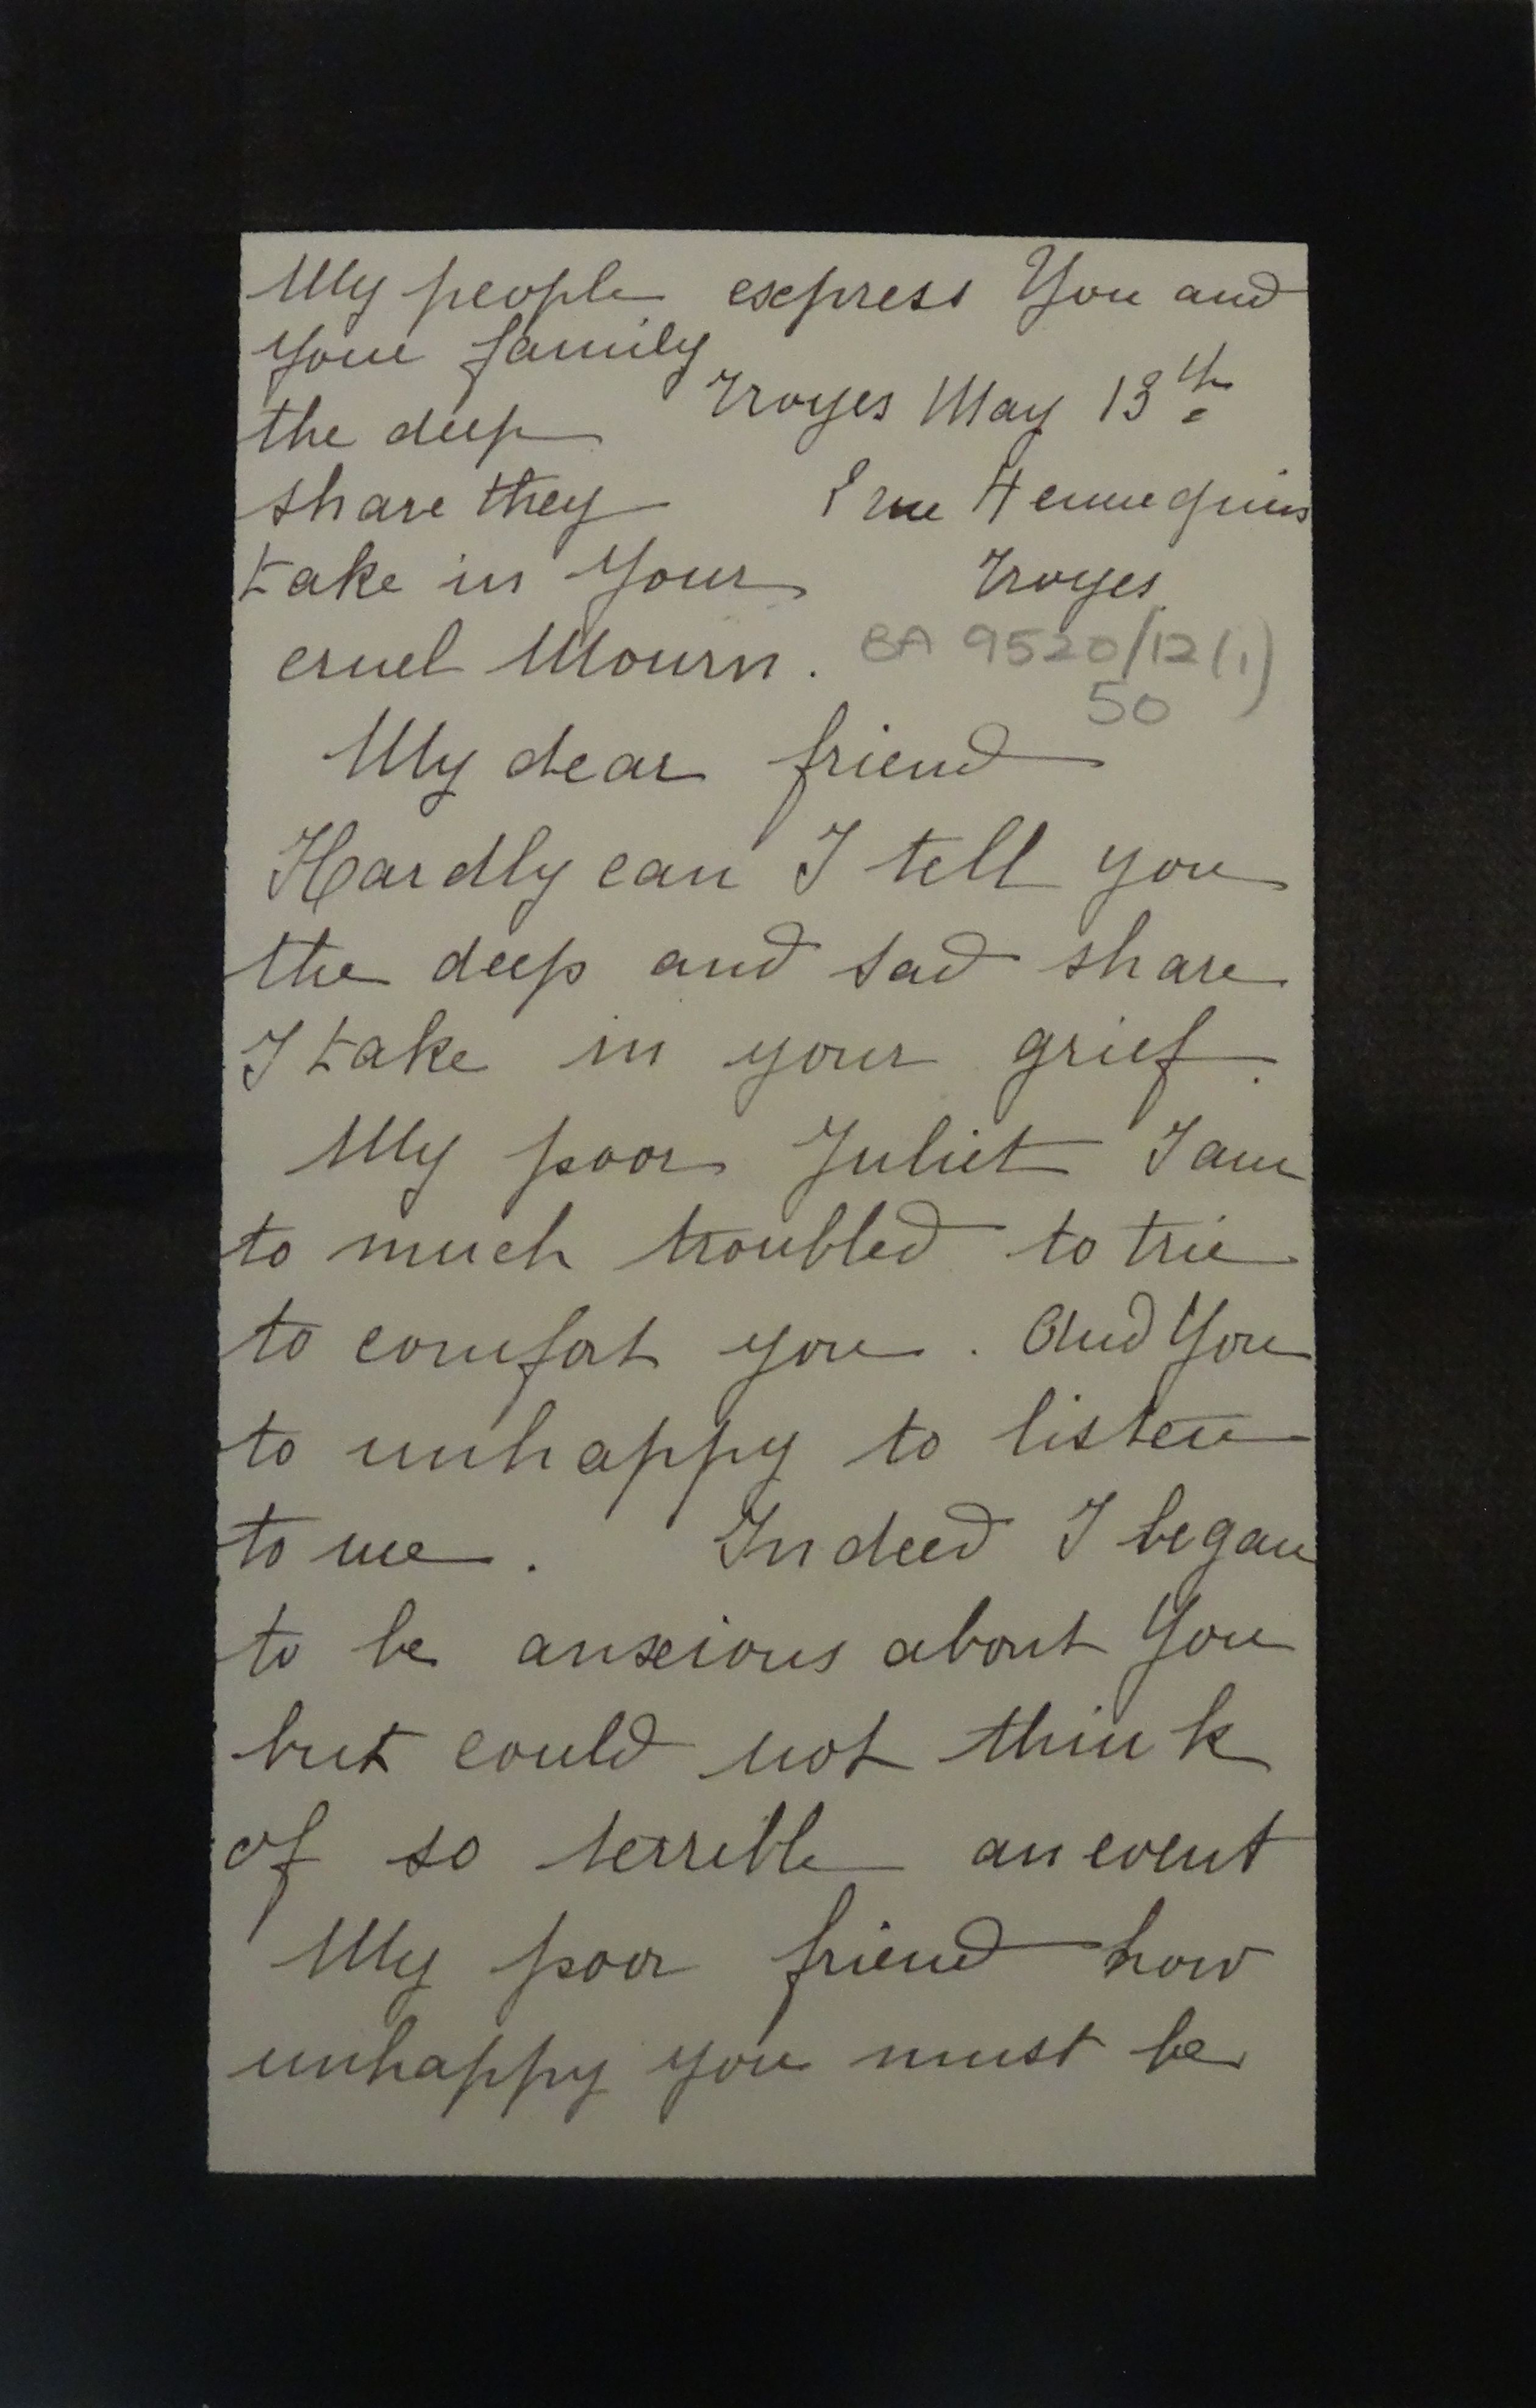 My people express You and
your family
the deep
share they
take in Your
cruel Mourn.
Troyes May 13th
rue Hennequin
Troyes
BA 9520/12(1)
50
My dear friend
Hardly can I tell you
the deep and sad share
I take in your grief.
My poor Juliet I am
to much troubled to trie
to comfort you. And You
to unhappy to listen
to me. Indeed I began
to be anxious about You
but could not think
of so terrible an event
My poor friend how
unhappy you must be